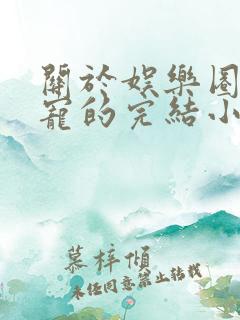 關於娛樂圈
寵的完結小
慕梓傾
未经同意禁止转载